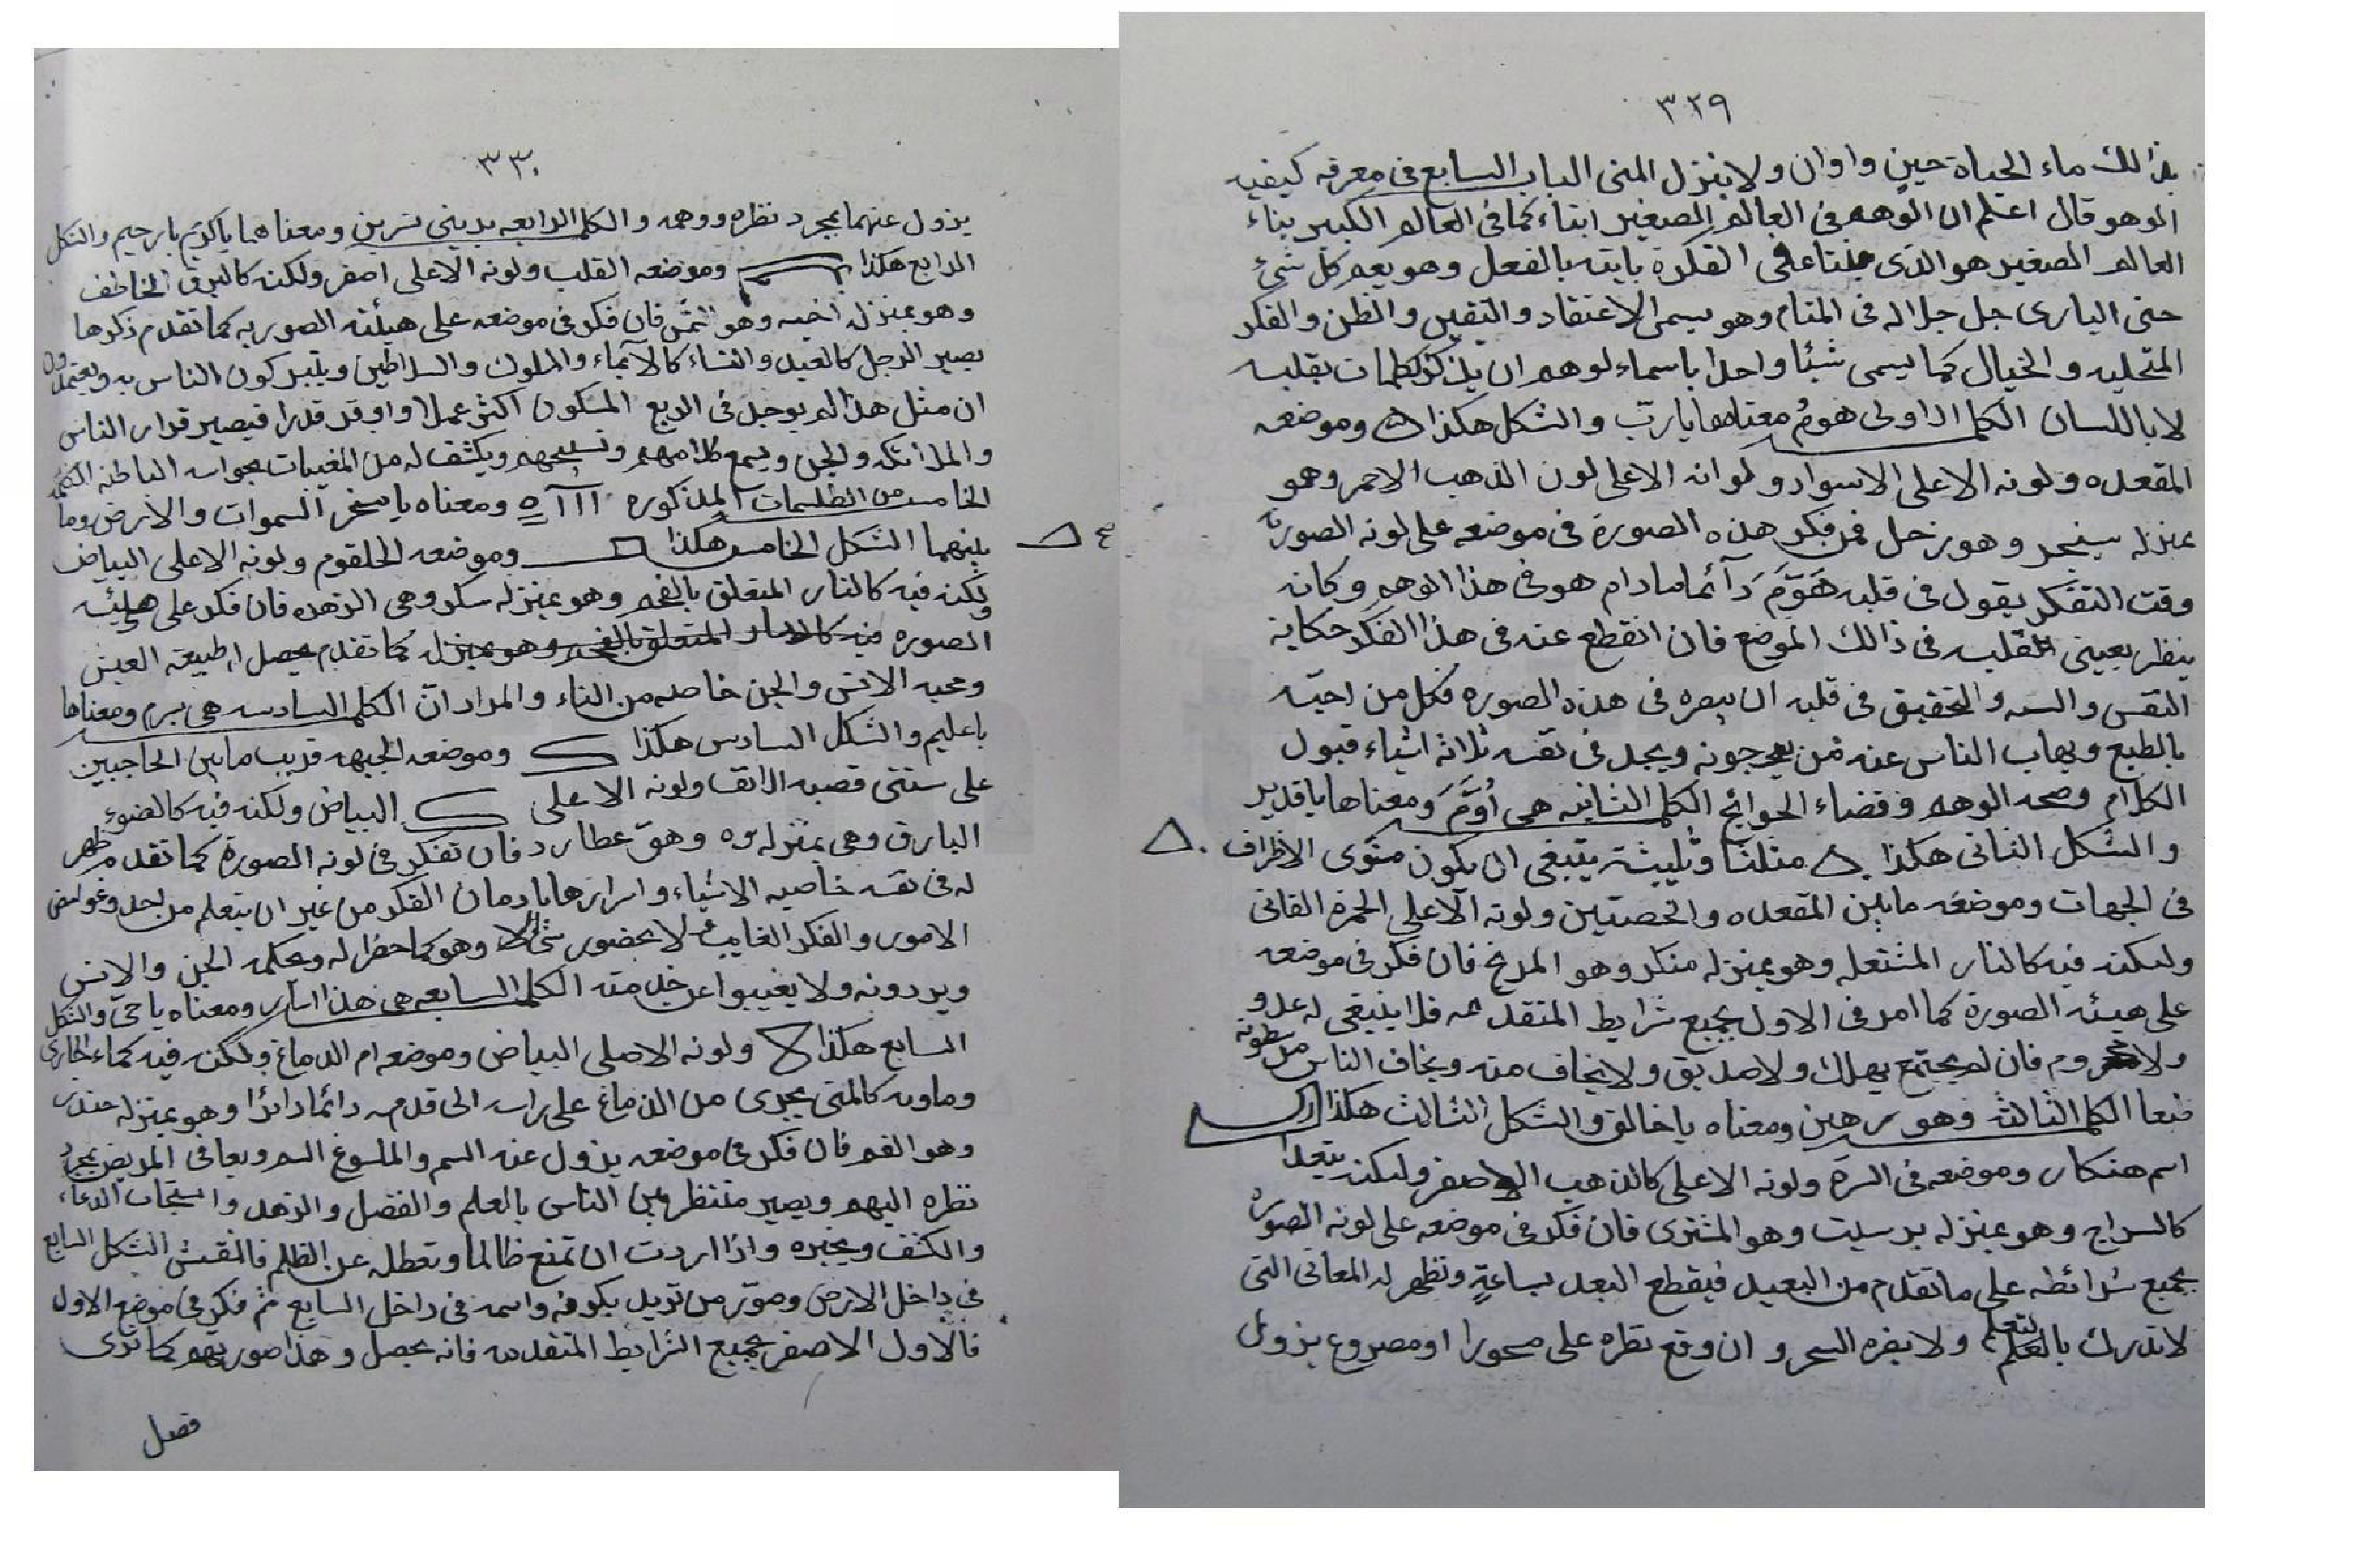 ٣٢٩
بذالك ماء الحياة حين واوان ولا ينزل المنى الباب السابع فى معرفه كيفيه
الوهم قال اعلم ان الوهم فى العالم الصغير ابناء كما فى العالم الكبير بناء
العالم الصغير هو الذى الفكرة باينه بالفعل وهو يعم كل شئ
حتى البارى جل جلاله فى المنام وهو يسمى الاعتقاد واليقين والظن والفكر
المتخليه والخيال كما يسمى شيئا واحدا باسماء لوهم ان يذكر كلمات بقلبه
لا باللسان الكلمه الاولى هوم معناها يا رب والشكل هكذا وموضعه
المقعده ولونه الاعلى الاسواد ولوانه الاعلى لون الذهب الاحمر وهو
بمنزله سنجر وهو زحل فمن فكر هذه الصورة فى موضعه على لونه الصورة
وقت التفكر يقول فى قلبه هَوَّمَ دآئما مادام هو فى هذا الوهم وكانه
ينظر بعينى القلبه فى ذالك الموضع فان انقطع عنه فى هذا الفكر حكاية
النفس والسه والتحقيق فى قلبه ان يبصره فى هذه الصوره فكل من احبّه
بالطبع ويهاب الناس عنه فمن يرجونه ويجد فى نفسه ثلاثه اشياء قبول
الكلام وصحه الوهم وقضاء الحوائج الكلمه الثانيه هى أوَّمَ ومعناها يا قدير
والشكل الثانى هكذا مثلثا وثليثة ينبغى ان يكون مستوى الاطراف
فى الجهات وموضعه ما بين المقعده والخصتين ولونه الاعلى الحمرة القانى
ولكنه فيه كالنار المشتعله وهو بمنزله منكر وهو المريخ فان فكر فى موضعه
على هيئه الصورة كما امر فى الاول بجميع شرايط المتقدمه فلا ينبقى له عدو
ولا فان لم يجتمع يهلك ولا صديق ولا يخاف منه ويخاف الناس من سطوته
طبعا الكلمه الثالثه وهو رهين ومعناه يا خالق والشكل الثالث هكذا
اسم هنكار وموضعه فى السرة ولونه الاعلى كالذهب الاصفر ولكنه يتعدا
كالسراج وهو بمنزله برسيت وهو المشترى فان فكر فى موضعه على لونه الصورة
بجميع شرائطه على ما تقدم من البعيد فيقطع البعد بساعةٍ وتظهر له المعانى التى
لا تدرك بالتعلم ولا يضره السحر وان وقع نظره على مسحورا او مصروع يزول
٣٣٠
يزول عنهما بمجرد نظره ووهمه والكلمه الرابعه بدينى نسرين ومعناهما يا كريم يا رحيم والشكل
الرابع هكذا وموضعه القلب ولونه الاعلى اصفر ولكنه كالبرق الخاطف
وهو بمنزله اخيه وهو شمس فان فكر فى موضعه على هيئته الصوريه كما تقدم ذكرها
يصير الرجل كالعبد والنساء كالآماء والملوك والسلاطين ويتبركون الناس به ويعتمدون
ان مثل هذا لم يوجد فى الربع المسكون اكثر عملا واوقد قدرا فيصير قدام الناس
والملائكه والجن ويسمع كلامهم وتسبيحهم ويكشف له من المغيبات بحواسه الباطنه الكلمه
الخامسه من الطلسمات المذكوره ااآه ومعناه يا مسخر السموات والارض وما
بينهما الشكل الخامس هكذا وموضعه الحلقوم ولونه الاعلى البياض
ولكنه فيه كالنار المتعلق بالفحم وهو بمنزله سكر وهى الزهره فان فكر على هيئه
الصوره فيه كالنار المتعلق بالفحم وهو بمنزله كما تقدم يحصل له طبيعة العيش
ومحبه الانس والجن خاصه من النساء والمراد ان الكلمه السادسه هى برم ومعناها
يا عليم والشكل السادس هكذا وموضعه الجبهه قريب ما بين الحاجبين
على سنتى قصبه الانف ولونه الاعلى البياض ولكنه فيه كالضوء
البارق وهى بمنزله وه وهو عطارد فان تفكر فى لونه الصورة كما تقدم ظهر
له فى نفسه خاصيه الاشياء واسرارها بادمان الفكر من غير ان يتعلم من احد وغوامض
الامور والفكر الغايب لا بحضور شئ الا وهو كما حضر له ويحكمه الجن والانس
ويردونه ولا يغيبوا عن خدمته الكلمه السابعه هى هذا اسار ومعناه يا حى والشكل
السابع هكذا ولونه الاصلى البياض وموضعه ام الدماغ ولكنه فيه كماء الجارى
وماوته كالمنى يجرى من الدماغ على راسه الى قدمه دائما دائرا وهو بمنزله جندر
وهو القمر فان فكر فى موضعه يزول عنه السم والملسوغ السم ويعافى المريض بمجرد
نظره اليهم ويصير منتظر بين الناس بالعلم والفضل والزهد واستجاب الدعاء
والكشف ويجبره واذا اردت ان تمنع ظالما وتعطله عن الظلم فالنقش الشكل السابع
فى داخل الارض وصوّر من تريد بكونه واسمه فى داخل السابع ثم فكر فى موضع الاول
فالاول الاصفر بجميع الشرايط المتقدمه فانه يحصل وهذا صورتهم كما ترى
فصل